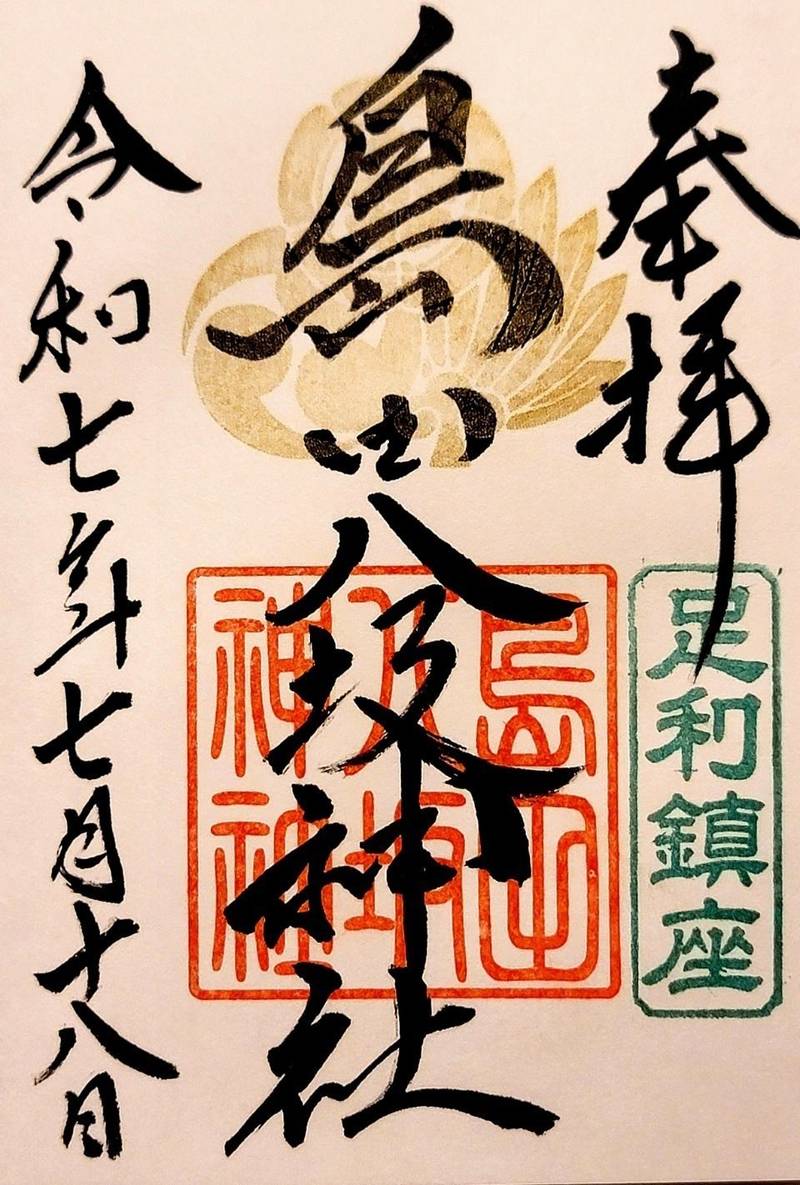 奉拝
足利鎮座
島田八坂神社
島田
八坂
神社
令和七年七月十八日